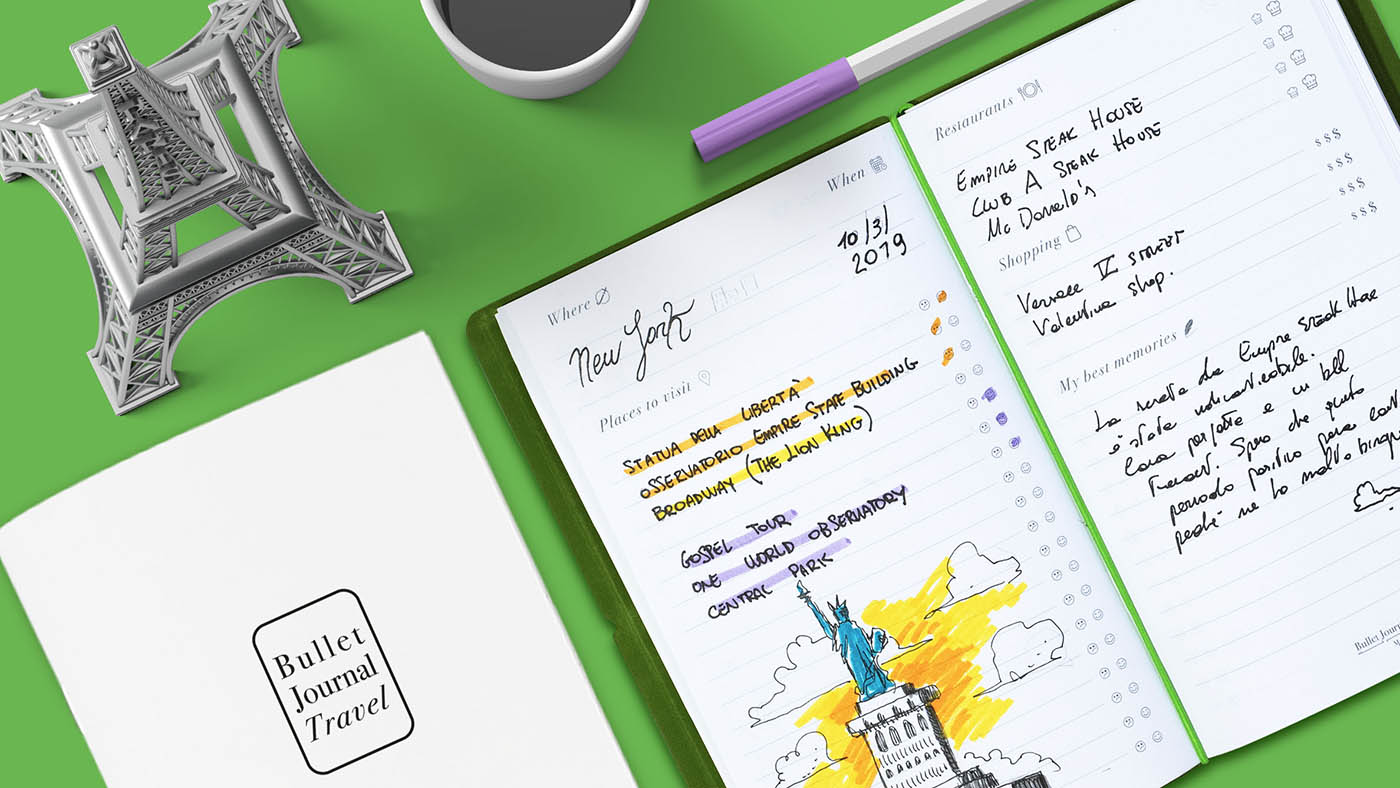 Bullet
Journal
Travel
Where
New York
When
10/3/
2019
Places to visit
STATUA DELLA LIBERTÀ
OSSERVATORIO EMPIRE STATE BUILDING
BROADWAY (THE LION KING)
GOSPEL TOUR
ONE WORLD OBSERVATORY
CENTRAL PARK
Restaurants
EMPIRE STEAK HOUSE
CLUB A STEAK HOUSE
Mc Donald's
$$$
$$$
$$$
$$$
Shopping
Versace V STREET
Valentino shop.
My best memories
La serata da Empire Steak House
è stata indimenticabile.
e un
Spero che questo
periodo positivo
perché me lo
Bullet Jour